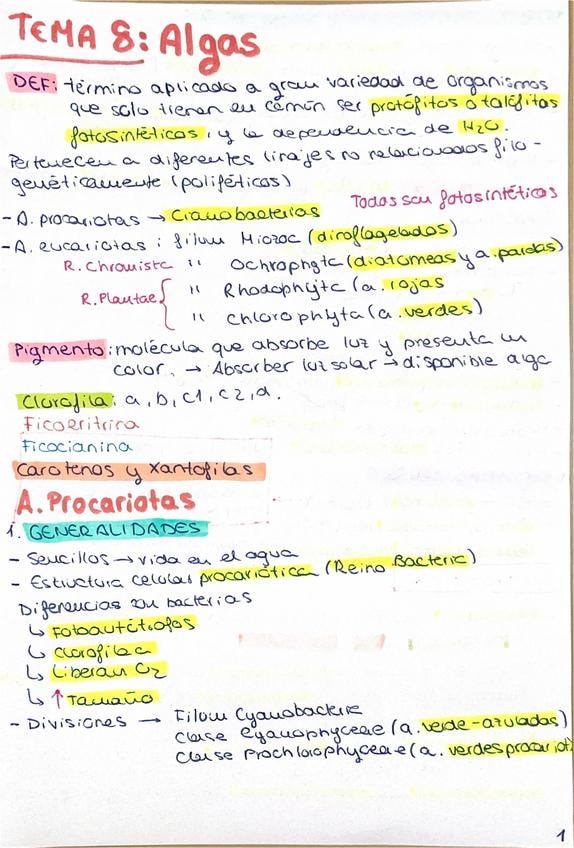 TEMA 8: Algas
DEF: término aplicado a gran variedad de organismos
que solo tienen en común ser protófitos o talófitos
fotosintéticos, y la dependencia de H2O.
Pertenecen a diferentes linajes no relacionados filo-
genéticamente (polifléticos)
Todas son fotosintéticos
- A. procariotas → Cianobacterias
- A. eucariotas: filum Miozoc (diroflagelados)
R. Chromista " Ochrophyta (diatomeas y a. pardas)
R. Plantae " Rhodophyta (a. rojas
" Chlorophyta (a. verdes)
Pigmento: molécula que absorbe luz y presenta un
color. → Absorber luz solar → disponible alga
Clorofila: a, b, c1, c2, d.
Ficoeritrina
Ficocianina
Carotenos y Xantofilas
A. Procariotas
1. GENERALIDADES
- Sencillos → vida en el agua
- Estructura celular procariótica (Reino Bacteria)
Diferencias con bacterias
↳ Fotoautótrofas
↳ Clorofila a
↳ Liberan O2
↳ ↑ Tamaño
- Divisiones → Filum Cyanobacterie
Clase Cyanophyceae (a. verde-azuladas)
Clase Prochlorophyceae (a. verdes procariot
1